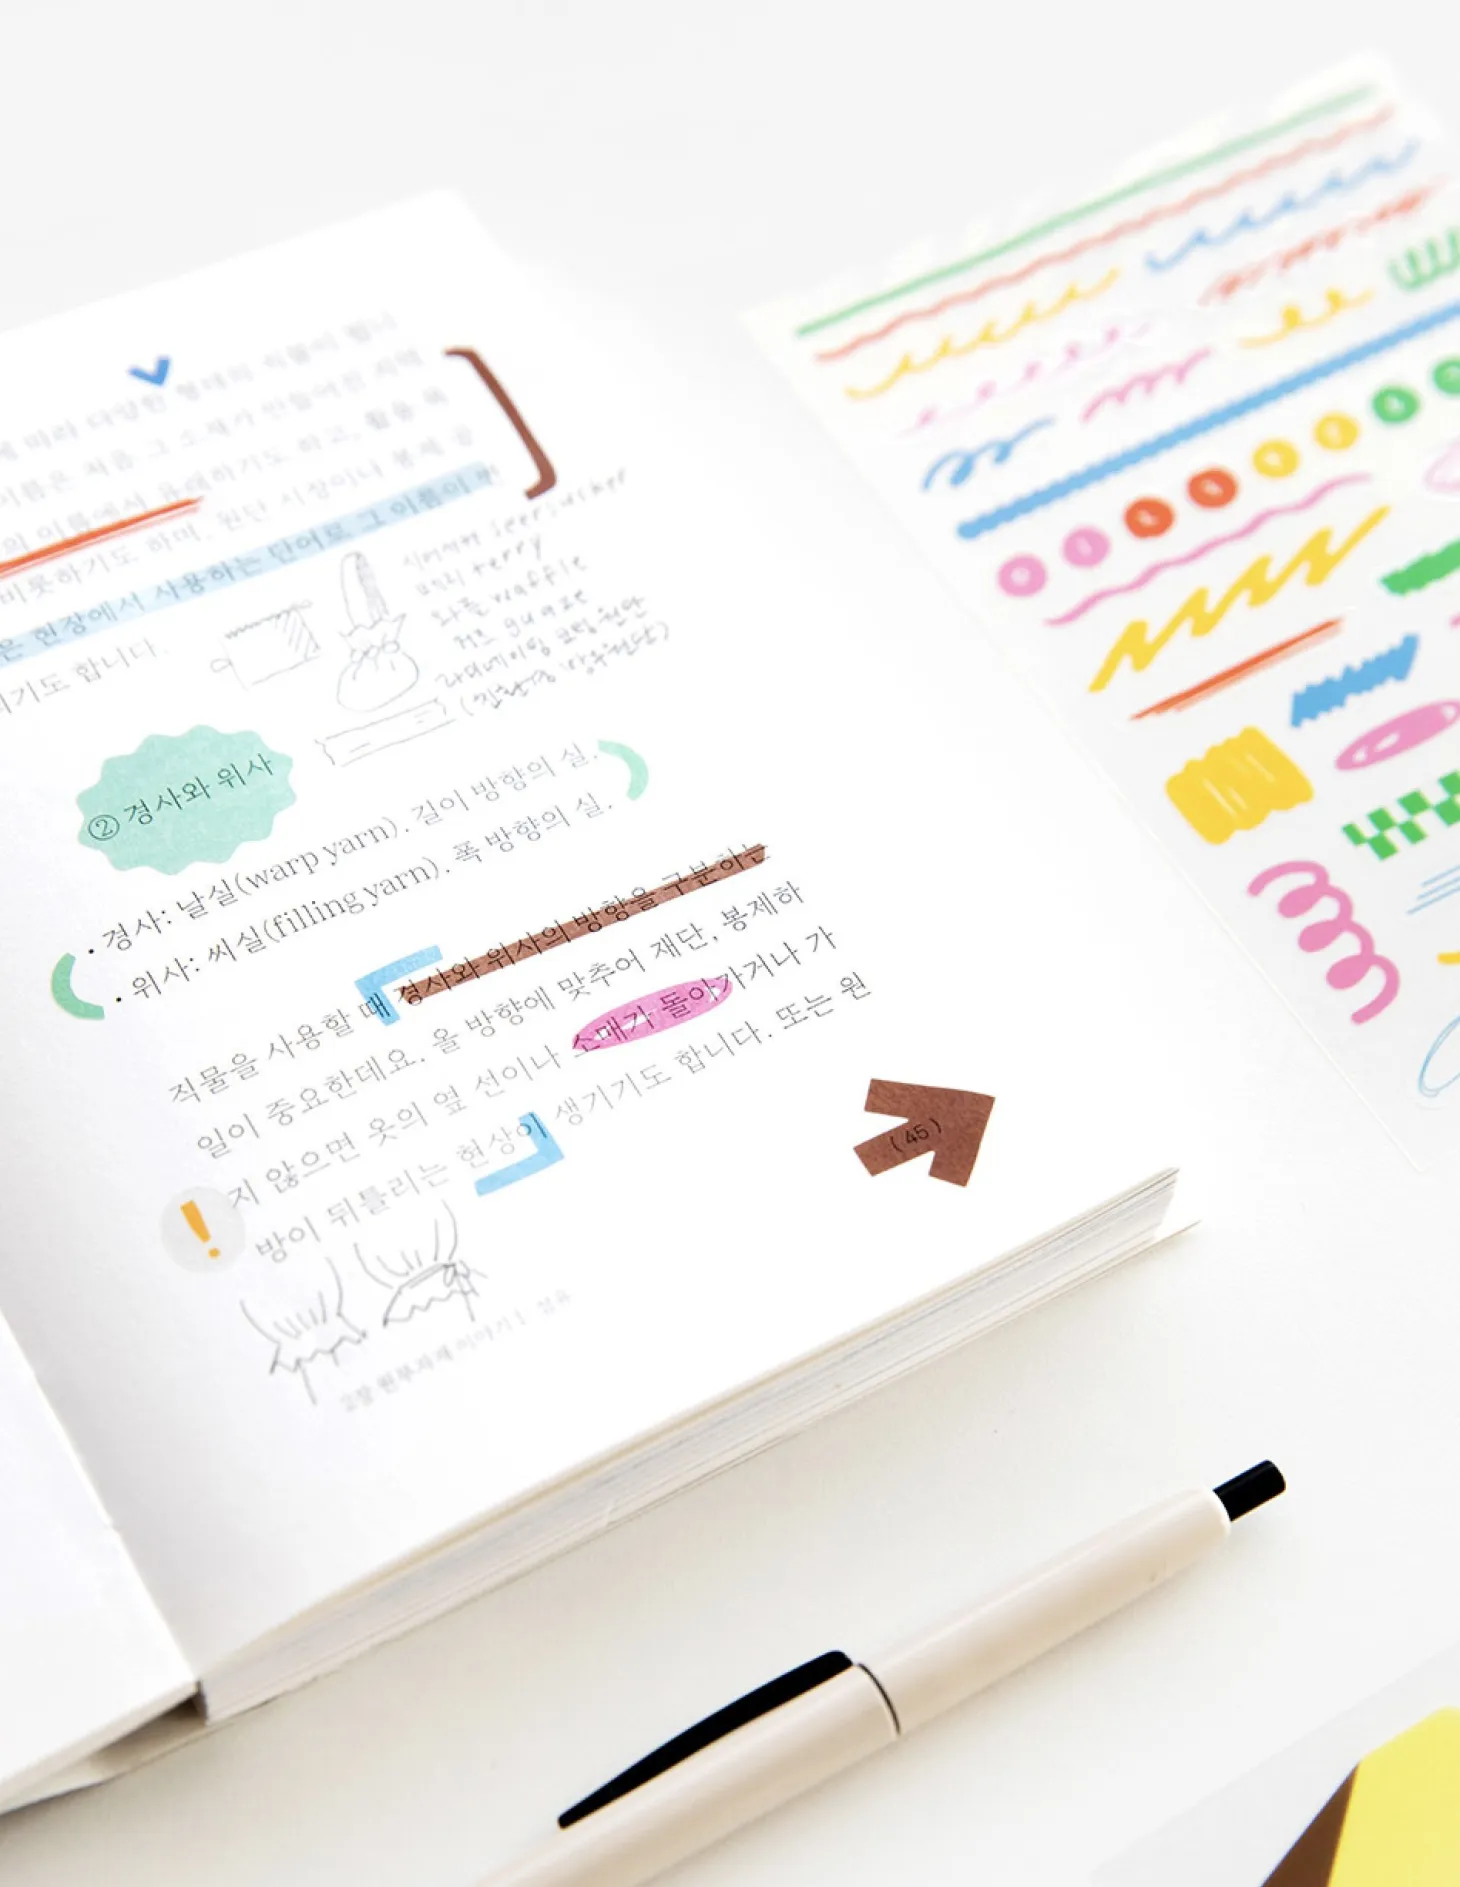 에 따라 다양한 형태의 직물이 됩니
이름은 처음 그 소재가 만들어진 지역
의 이름에서 유래하기도 하고, 활용 목
비롯하기도 하며, 원단 시장이나 봉제 공
은 현장에서 사용하는 단어로 그 이름이 변
되기도 합니다.
시어서커 seersucker
테리 terry
와플 waffle
거즈 guaze
라미네이팅 코팅 원단
② 경사와 위사
• 경사: 날실(warp yarn). 길이 방향의 실.
• 위사: 씨실(filling yarn). 폭 방향의 실.
직물을 사용할 때 경사와 위사의 방향을 구분하는
일이 중요한데요. 올 방향에 맞추어 재단, 봉제하
지 않으면 옷의 옆 선이나 소매가 돌아가거나 가
방이 뒤틀리는 현상이 생기기도 합니다. 또는 원
!
(45)
원부자재 이야기 | 섬유